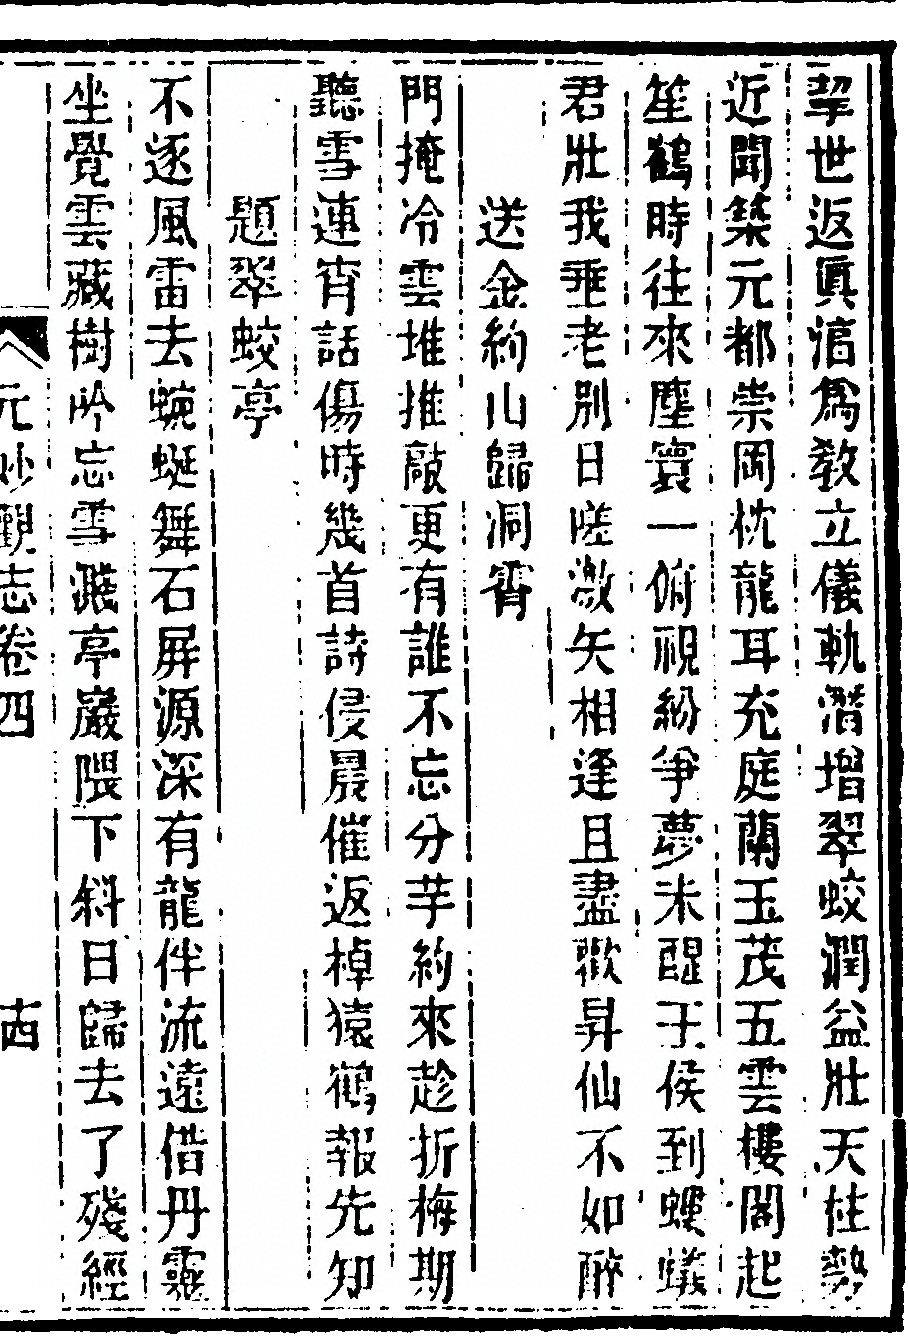 挈世返眞淳爲敎立儀軌潛增翠蛟潤益壯天柱勢
近聞築元都崇岡枕龍耳充庭蘭玉茂五雲樓閣起
笙鶴時往來塵寰一俯視紛爭夢未醒王侯到螻蟻
君壯我垂老別日嗟激矢相逢且盡歡昇仙不如醉
送金約山歸洞霄
門掩冷雲堆推敲更有誰不忘分芋約來趁折梅期
聽雪連宵話傷時幾首詩侵晨催返棹猿鶴報先知
題翠蛟亭
不逐風雷去蜿蜒舞石屏源深有龍伴流遠借丹靈
坐覺雲藏樹吟忘雪濺亭巖隈下斜日歸去了殘經
元妙觀志卷四